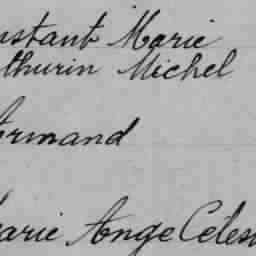 nstant Marie
thurin Michel
Armand
arie Ange Celes